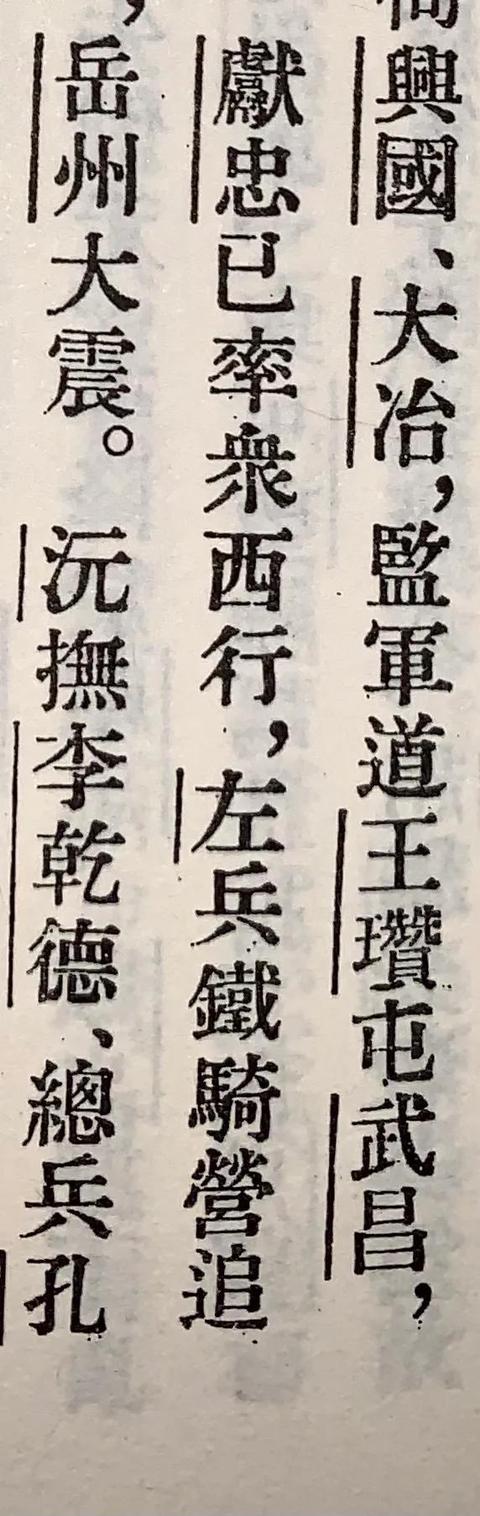 向興國、大冶，監軍道王瓚屯武昌，
獻忠已率衆西行，左兵鐵騎營追
，岳州大震。　沅撫李乾德、總兵孔